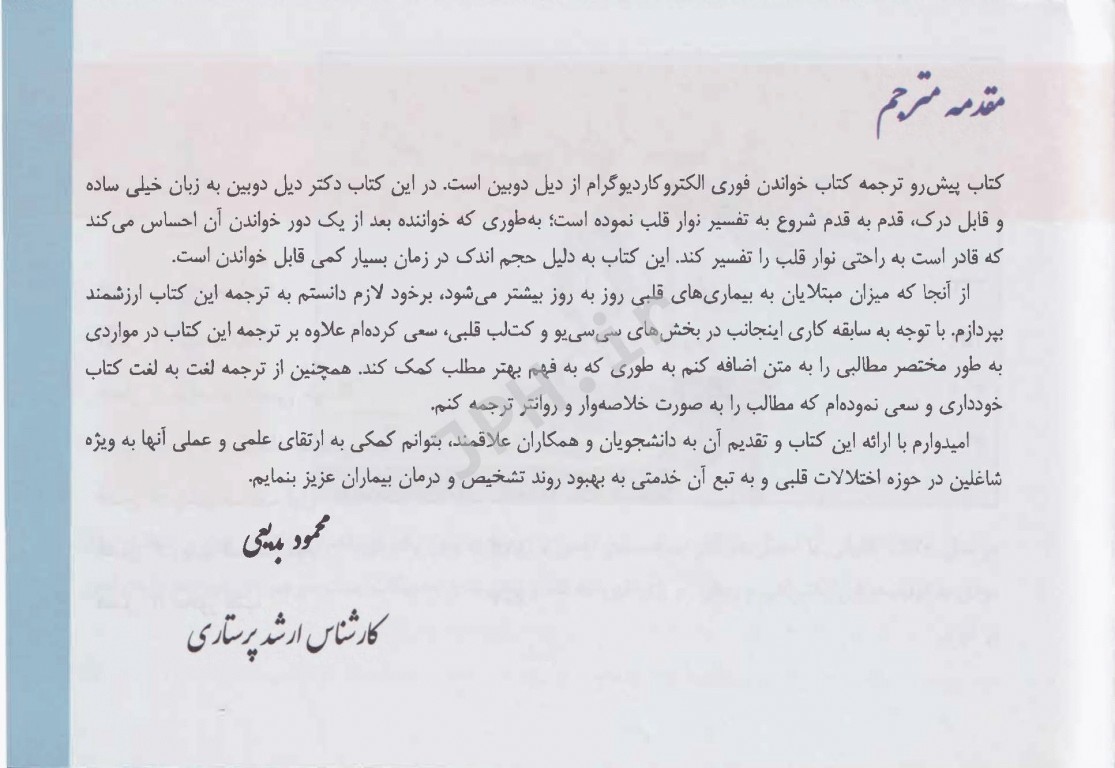 مقدمه مترجم
کتاب پیش‌رو ترجمه کتاب خواندن فوری الکتروکاردیوگرام از دیل دوبین است. در این کتاب دکتر دیل دوبین به زبان خیلی ساده
و قابل درک، قدم به قدم شروع به تفسیر نوار قلب نموده است؛ به‌طوری که خواننده بعد از یک دور خواندن آن احساس می‌کند
که قادر است به راحتی نوار قلب را تفسیر کند. این کتاب به دلیل حجم اندک در زمان بسیار کمی قابل خواندن است.
از آنجا که میزان مبتلایان به بیماری‌های قلبی روز به روز بیشتر می‌شود، برخود لازم دانستم به ترجمه این کتاب ارزشمند
بپردازم. با توجه به سابقه کاری اینجانب در بخش‌های سی‌سی‌یو و کت‌لب قلبی، سعی کرده‌ام علاوه بر ترجمه این کتاب در مواردی
به طور مختصر مطالبی را به متن اضافه کنم به طوری که به فهم بهتر مطلب کمک کند. همچنین از ترجمه لغت به لغت کتاب
خودداری و سعی نموده‌ام که مطالب را به صورت خلاصه‌وار و روانتر ترجمه کنم.
امیدوارم با ارائه این کتاب و تقدیم آن به دانشجویان و همکاران علاقمند، بتوانم کمکی به ارتقای علمی و عملی آنها به ویژه
شاغلین در حوزه اختلالات قلبی و به تبع آن خدمتی به بهبود روند تشخیص و درمان بیماران عزیز بنمایم.
محمود بدیعی
کارشناس ارشد پرستاری
JPH.ir